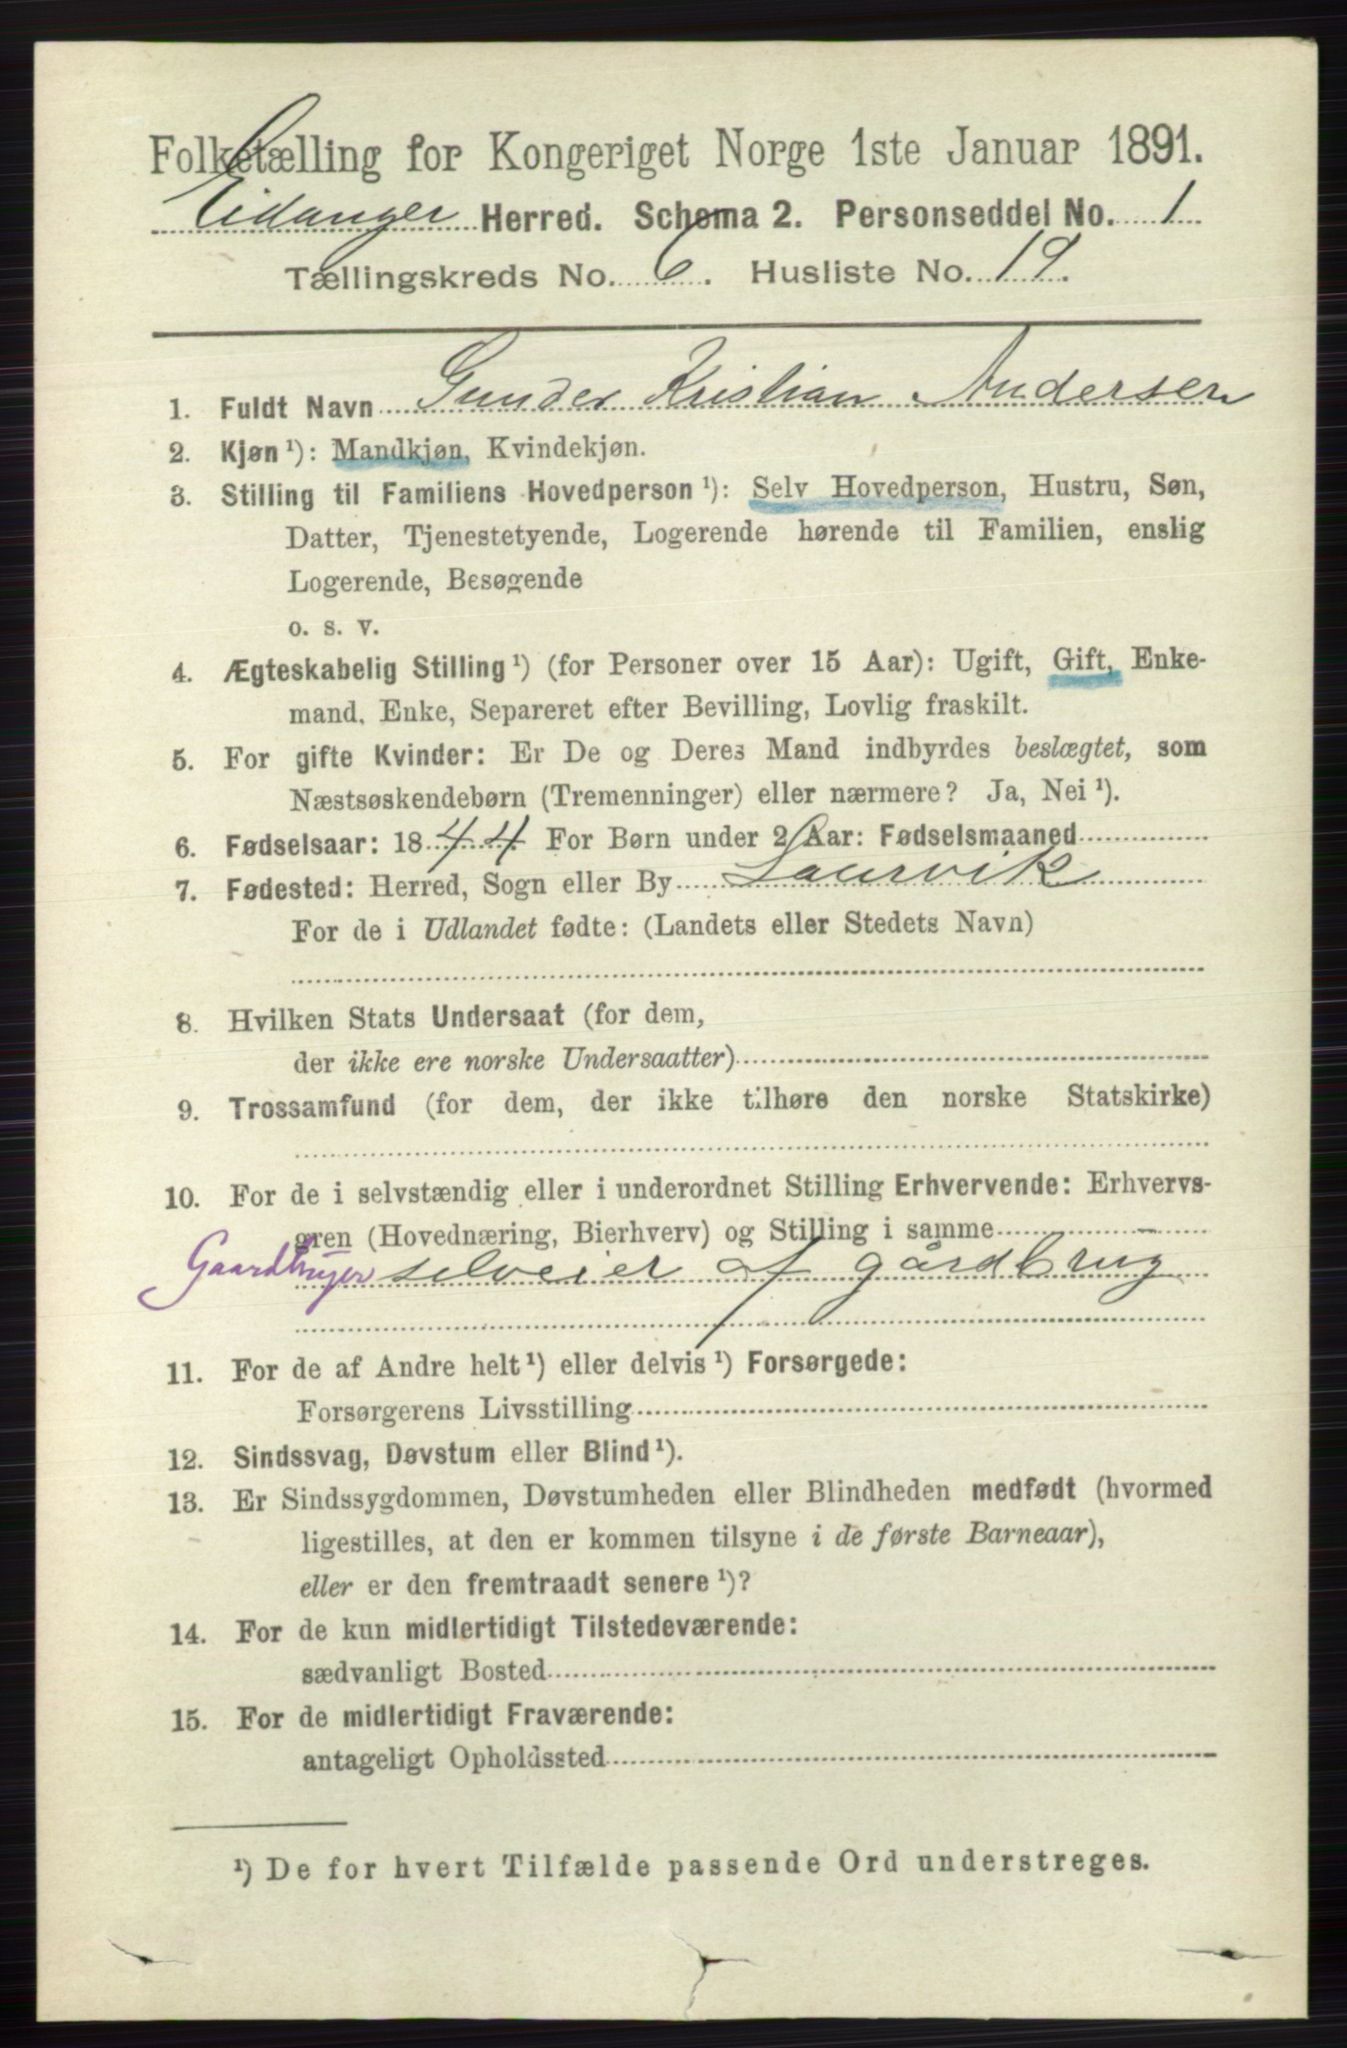 Folketælling for Kongeriget Norge 1ste Januar 1891.
Eidanger Herred. Schema 2. Personseddel No. 1
Tællingskreds No. 6. Husliste No. 19.
1. Fuldt Navn Gunder Kristian Andersen
2. Kjøn¹): Mandkjøn, Kvindekjøn.
3. Stilling til Familiens Hovedperson¹): Selv Hovedperson, Hustru, Søn,
Datter, Tjenestetyende, Logerende hørende til Familien, enslig
Logerende, Besøgende
o. s. v.
4. Ægteskabelig Stilling¹) (for Personer over 15 Aar): Ugift, Gift, Enke-
mand, Enke, Separeret efter Bevilling, Lovlig fraskilt.
5. For gifte Kvinder: Er De og Deres Mand indbyrdes beslægtet, som
Næstsøskendebørn (Tremenninger) eller nærmere? Ja, Nei¹).
6. Fødselsaar: 1844. For Børn under 2 Aar: Fødselsmaaned
7. Fødested: Herred, Sogn eller By Laurvik
For de i Udlandet fødte: (Landets eller Stedets Navn)
8. Hvilken Stats Undersaat (for dem,
der ikke ere norske Undersaatter)
9. Trossamfund (for dem, der ikke tilhøre den norske Statskirke)
10. For de i selvstændig eller i underordnet Stilling Erhvervende: Erhvervs-
gren (Hovednæring, Bierhverv) og Stilling i samme
Gaardbruger selveier af gårdbrug
11. For de af Andre helt¹) eller delvis¹) Forsørgede:
Forsørgerens Livsstilling
12. Sindssvag, Døvstum eller Blind¹).
13. Er Sindssygdommen, Døvstumheden eller Blindheden medfødt (hvormed
ligestilles, at den er kommen tilsyne i de første Barneaar),
eller er den fremtraadt senere¹)?
14. For de kun midlertidigt Tilstedeværende:
sædvanligt Bosted
15. For de midlertidigt Fraværende:
antageligt Opholdssted
¹) De for hvert Tilfælde passende Ord understreges.